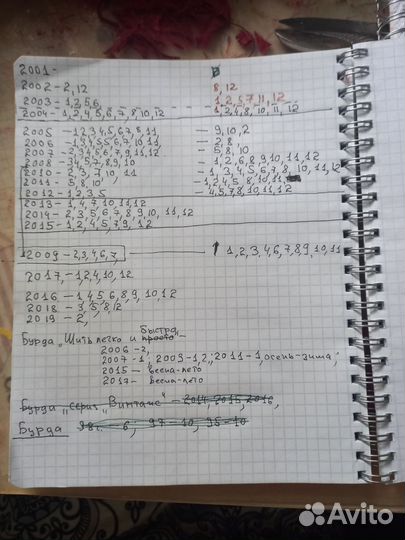 2001 -
2002 - 2, 12 8, 12
2003 - 1, 2, 5, 6 1, 2, 5, 7, 11, 12
2004 - 1, 2, 4, 5, 6, 7, 8, 10, 12 1, 2, 4, 8, 10, 11, 12
2005 - 1, 2, 3, 4, 5, 6, 7, 8, 11 - 9, 10, 2
2006 - 1, 3, 4, 5, 5, 6, 7, 10, 11 - 2, 8
2007 - 5, 8, 10
2008 - 3, 4, 5, 7, 8, 9, 10 - 1, 2, 6, 8, 9, 10, 11, 12
2010 - 2, 3, 7, 10, 11 - 1, 3, 4, 5, 6, 7, 8, 10, 11, 12
2011 - 5, 8, 10 - 1, 2, 4, 5, 8, 10, 11
2012 - 1, 2, 3, 5 - 4, 5, 7, 8, 10, 11, 12
2013 - 1, 4, 7, 10, 11, 12
2014 - 2, 3, 5, 6, 7, 8, 9, 10, 11, 12
2015 - 1, 2, 4, 5, 7, 9, 12
2009 - 2, 3, 4, 6, 7 1, 2, 3, 4, 6, 7, 8, 9, 10, 11
2017 - 1, 2, 4, 10, 12
2016 - 1, 4, 5, 6, 8, 9, 10, 12
2018 - 3, 5, 8, 12
2019 - 2,
быстро
Бурда „Шить легко и просто -
2006 - 2,
2007 - 1, 2009 - 1, 2, 2011 - 1, осень-зима;
2015 - весна-лето
весна-лето
Бурда „серия „Винтаж" - 2014, 2015, 2016,
Бурда - 6, 97 - 10, 95 - 10
Avito